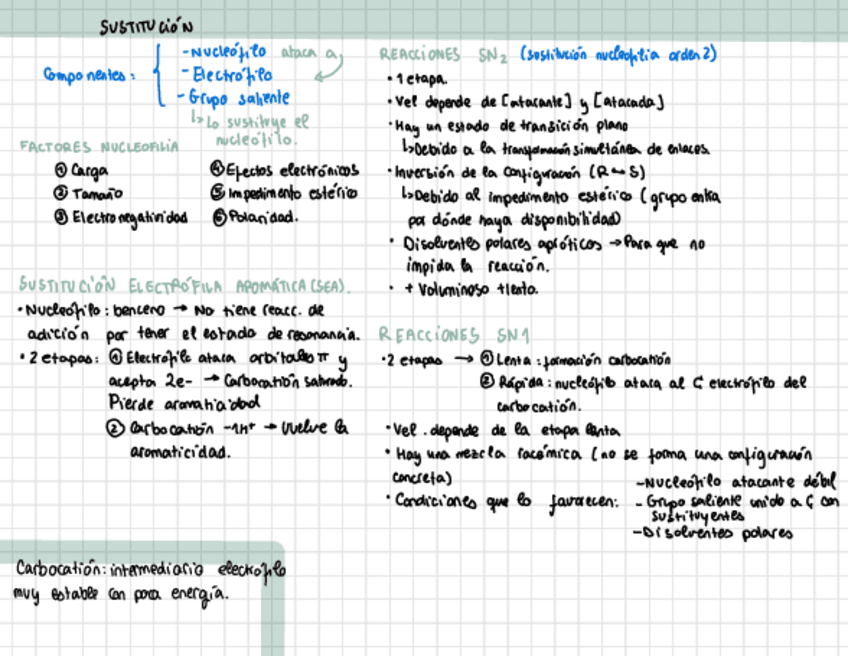 SUSTITUCIÓN
Componentes:
- Nucleófilo ataca a
- Electrófilo
- Grupo saliente
↳ Lo sustituye el
nucleófilo.
FACTORES NUCLEOFILIA
① Carga
② Tamaño
③ Electronegatividad
④ Efectos electrónicos
⑤ Impedimento estérico
⑥ Polaridad.
SUSTITUCIÓN ELECTRÓFILA AROMÁTICA (SEA).
· Nucleófilo: benceno → No tiene reacc. de
adición por tener el estado de resonancia.
· 2 etapas: ① Electrófilo ataca orbitales π y
acepta 2e- → Carbocatión saturado.
Pierde aromaticidad
② Carbocatión -1H⁺ → Vuelve la
aromaticidad.
Carbocatión: intermediario electrófilo
muy estable con poca energía.
REACCIONES SN₂ (sustitución nucleofilia orden 2)
· 1 etapa.
· Vel depende de [atacante] y [atacada]
· Hay un estado de transición plano
↳ Debido a la transformación simultánea de enlaces.
· Inversión de la configuración (R ↔ S)
↳ Debido al impedimento estérico (grupo entra
por dónde haya disponibilidad)
· Disolventes polares apróticos → Para que no
impida la reacción.
· + Voluminoso + lento.
REACCIONES SN1
· 2 etapas → ① Lenta: formación carbocatión
② Rápida: nucleófilo ataca al C electrófilo del
carbocatión.
· Vel. depende de la etapa lenta
· Hay una mezcla racémica (no se forma una configuración
concreta)
· Condiciones que lo favorecen:
- Nucleófilo atacante débil
- Grupo saliente unido a C con
sustituyentes
- Disolventes polares